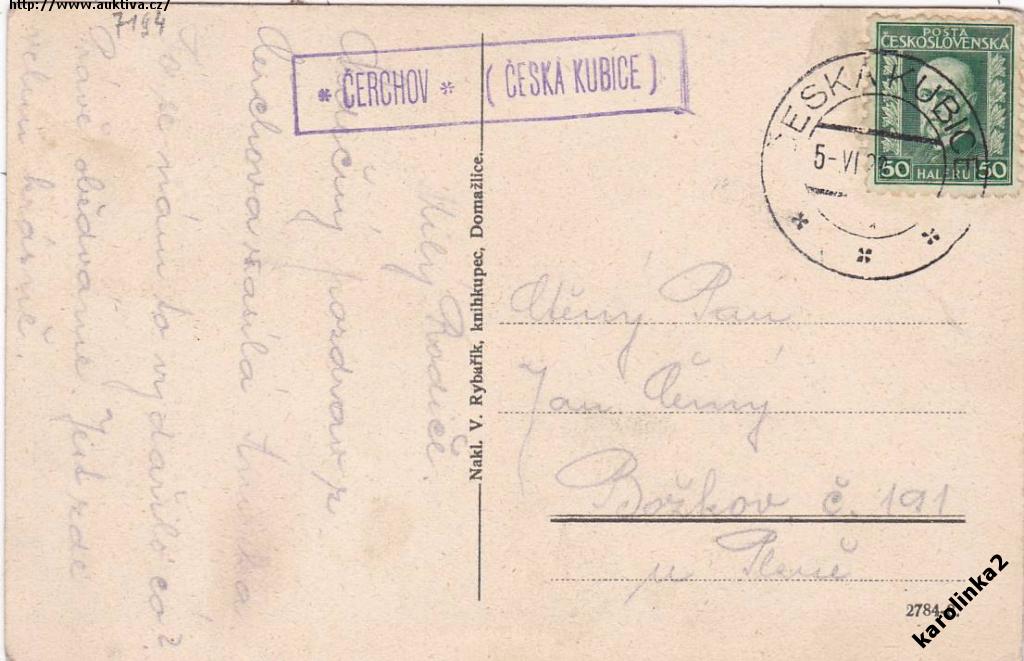 http://www.auktiva.cz/
7194
* ČERCHOV * ( ČESKÁ KUBICE )
POŠTA
ČESKOSLOVENSKÁ
50 HALÉŘŮ 50
ČESKÁ KUBICE
5-VI
Milý Rodiče.
Srdečný pozdrav z
Čerchova zasílá
To se nám to vydařilo co?
Právě obědváme. Jest zde
velmi krásně.
Nakl. V. Rybařík, knihkupec, Domažlice.
Ctěný Pan
Jan Černý
Božkov č. 191
u Plzně
2784-
karolinka2